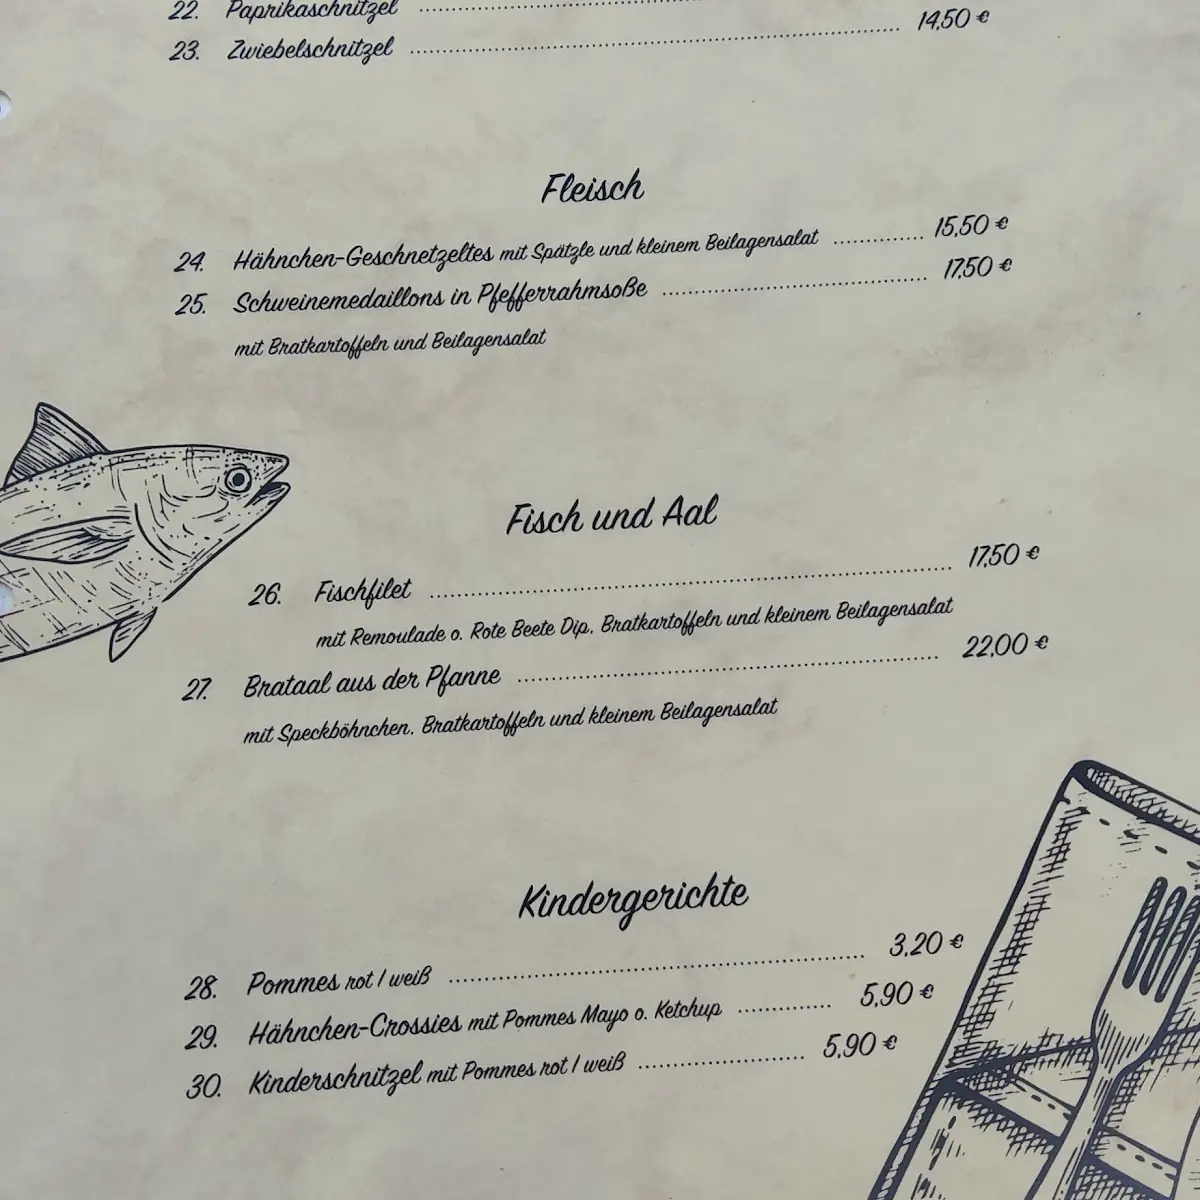 22. Paprikaschnitzel
23. Zwiebelschnitzel 14,50 €
Fleisch
24. Hähnchen-Geschnetzeltes mit Spätzle und kleinem Beilagensalat 15,50 €
25. Schweinemedaillons in Pfefferrahmsoße 17,50 €
mit Bratkartoffeln und Beilagensalat
Fisch und Aal
26. Fischfilet 17,50 €
mit Remoulade o. Rote Beete Dip, Bratkartoffeln und kleinem Beilagensalat
27. Brataal aus der Pfanne 22,00 €
mit Speckböhnchen, Bratkartoffeln und kleinem Beilagensalat
Kindergerichte
28. Pommes rot / weiß 3,20 €
29. Hähnchen-Crossies mit Pommes Mayo o. Ketchup 5,90 €
30. Kinderschnitzel mit Pommes rot / weiß 5,90 €